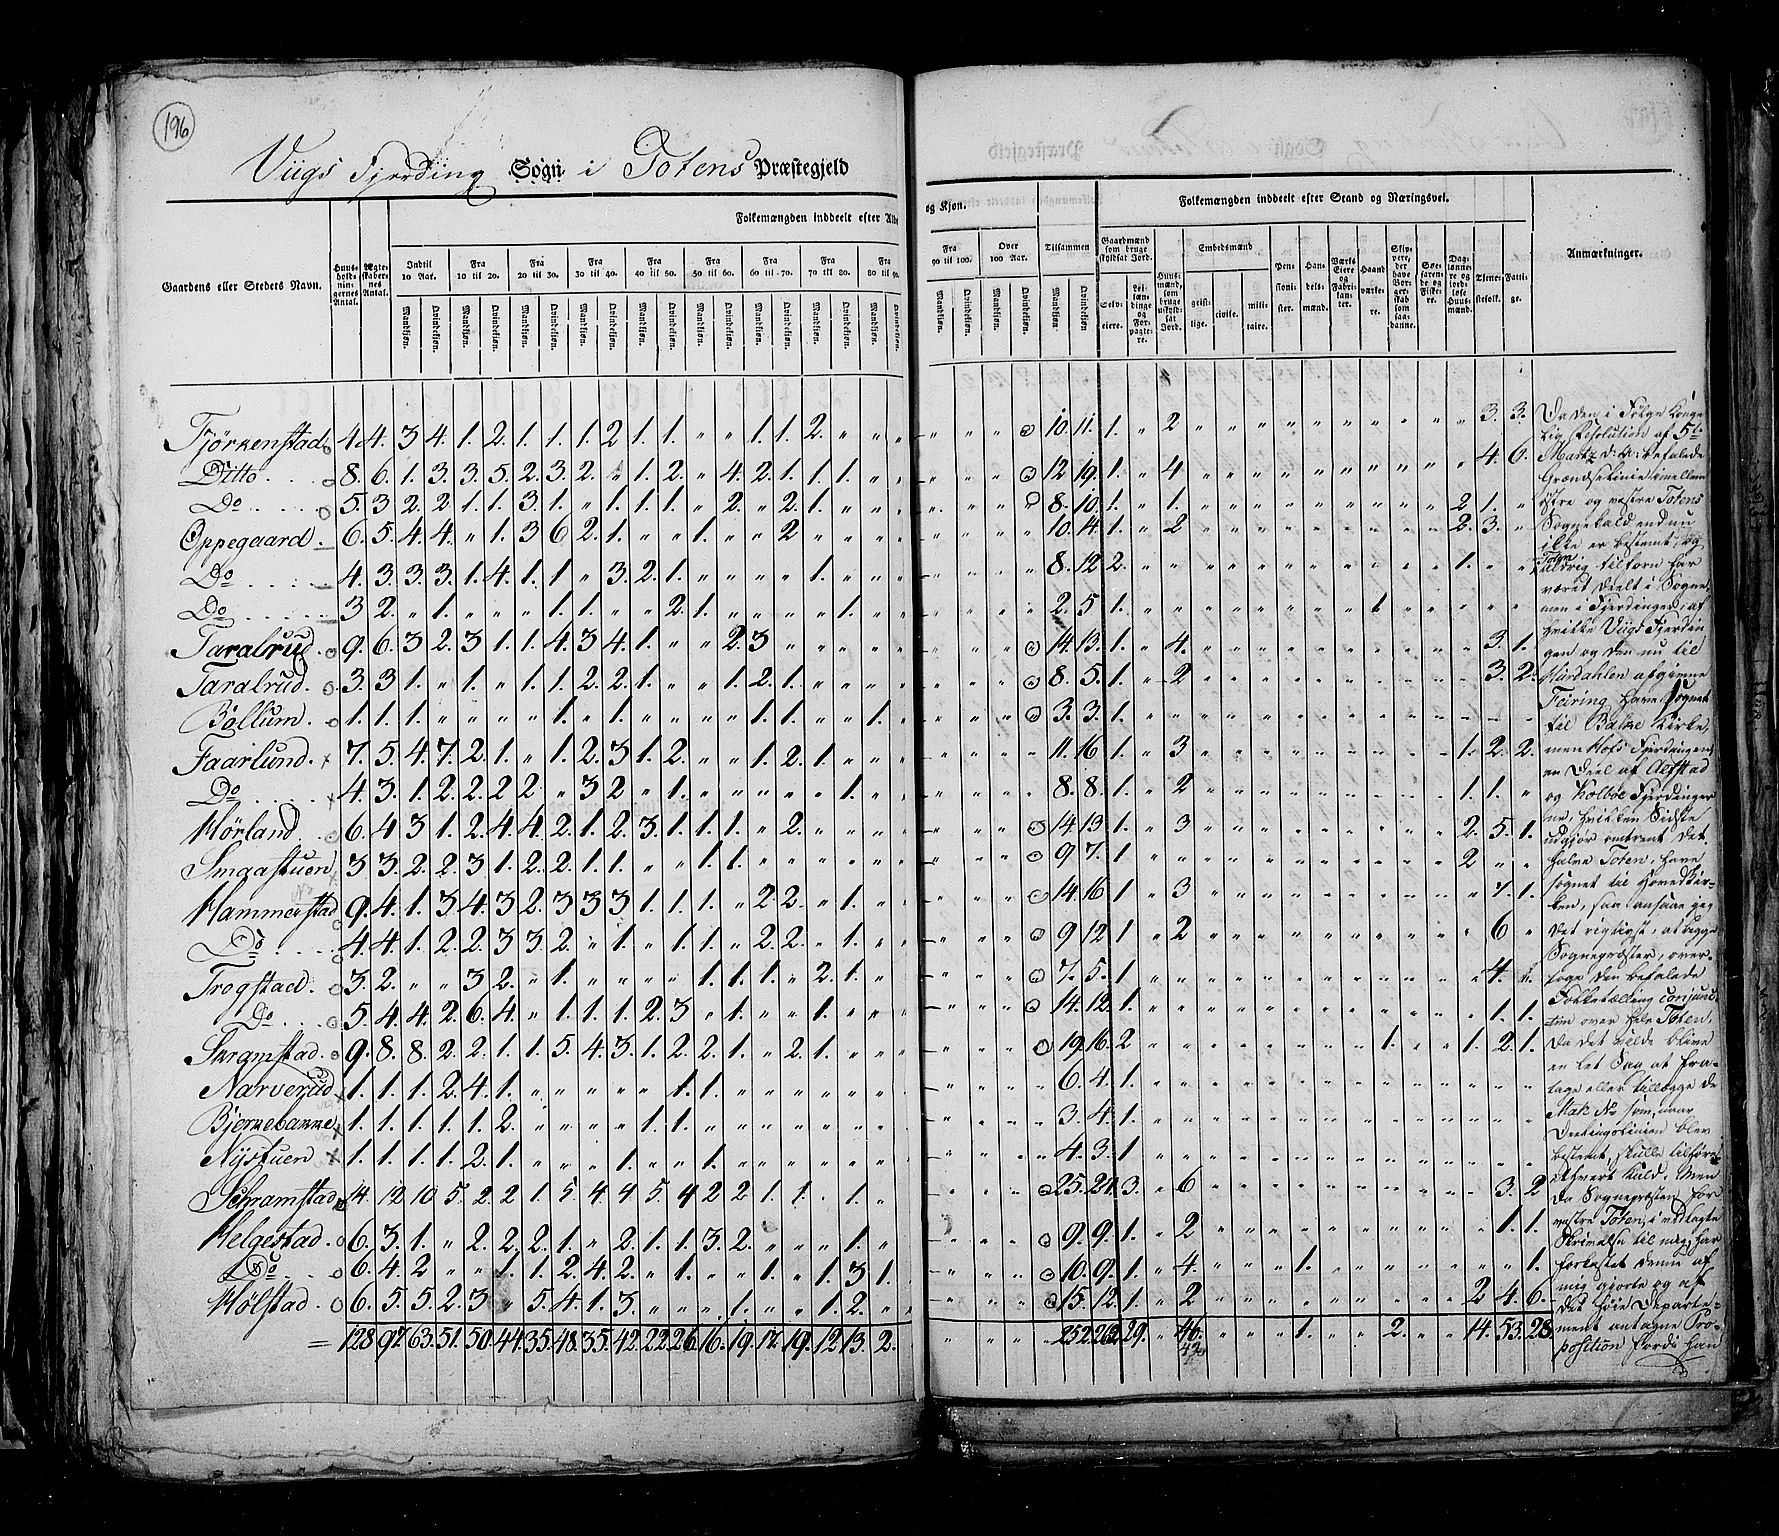 196
Viigs Fjerding Sogn i Totens Præstegjeld
Gaardens eller Stedets Navn.
Huusholdningernes Antal.
Ægteskabernes Antal.
Folkemængden inddeelt efter Alde
og Kjøn.
Folkemængden inddeelt efter Stand og Næringsvei.
Anmærkninger.
Indtil 10 Aar. Fra 10 til 20. Fra 20 til 30. Fra 30 til 40. Fra 40 til 50. Fra 50 til 60. Fra 60 til 70. Fra 70 til 80. Fra 80 til 90.
Fra 90 til 100. Over 100 Aar. Tilsammen
Mandkjøn. Qvindekjøn.
Gaardmænd som bruge skyldsat Jord.
Selveiere. Leilændinge og Forpagtere.
Huusmænd, som bruge uskyldsat Jord.
Embedsmænd
geistlige. civile. militaire.
Pensionister.
Handelsmænd.
Værks Eiere og Fabrikanter.
Haandværkere.
Skippere, der have Borgerskab som saadanne.
Søefarende og Fiskere.
Daglønnere og jordløse Huusmænd.
Tjenestefolk.
Fattige.
Fjörkenstad 4. 4. 3. 4. 1. 2. 1. 1. 1. 2. 1. 1. " " 1. 1. 2. " " " " " " 10. 11. 1. " 2 3. 3.
Ditto 8. 6. 1. 3. 3. 5. 2. 3. 2. " 1. 2. " 4. 2. 1. 1. 1. " 12 19. 1. " 4. 4. 6.
Do 5. 3 2. 2. 1. 1. 3. 1. " 1. 1. 1. " 2. " 2. 1. " " 8. 10. 1. " 1. 2 1. "
Oppegaard 6. 5. 4. 4. " 1. 3 6 2. 1. " " 1. " " 2 " " " 10. 4. 1. " 2 2. 3. "
Do 4. 3. 3. 3. 1. 4. 1. 1. " 3. 2. 1. " " " " 1. " " 8. 12 2. 1. " "
Do 3 2. " 1. " " " 1. 1. " " 2. 1. " " " " 1. " 2. 5 1. 1
Taralrud 9. 6. 3 2. 3 1. 1. 4. 3 4. 1. " " 2. 3 " " " " 14. 13. 1. " 4. 3. 1.
Taralrud 3. 3 1. " 1. " 1. 1. 2. 2. 1. " " 1. 2. 1. " " " 8. 5. 1. " 2 3. 2.
Böllum 1. 1. 1. " " " " 1. " 1. " " " " 1. 1. " " 1. 3. 3. 1.
Faarlund 7. 5. 4. 7. 2. 1. " 1. 2. 3 1. 2. " " 1. 2. 1. " " 11. 16 1. " 3. 1. 2. 2.
Do 4. 3. 1. 2. 2 2 2. " 3 2. " 1. " " " " " 1. " 8. 8. 1. " 2 1. 1. "
Hörland 6. 4 3 1. 2. 4. 4. 2. 1. 2. 3. 1. 1. 1. " 2. " " " 14. 13 1. " 3. 2. 5. 1.
Smaastuen 3 3. 2. 2. 3 1. 2. 2. 1. 1. " " 1. 1. " " " " " 9 7. 1. 2 " "
Hammerstad 9. 4. 1. 3. 4. 3 2. 3 3 3 1. 1. 1. " 2 2. " 1. " 14. 16 1. " 3 1.
Do 4. 4 1. 2. 2. 3 3 2. " 1. " 1. 1. " 2. 2. " 1. " 9. 12 1. " 2 6 "
Trogstad 3. 2. " " 3 2. " 1. " " " " 1. 1. 1. " 2. 1. " 7. 5. 1. 4. "
Do 5. 4. 4. 2. 6. 4. " 1. 1. 1. 2 3 " 1. " " 1. " " 14. 12. 1. 1. 1.
Skramstad 9. 8. 8. 2 2. 1. 1. 5. 4. 3. 1. 2. 2. 1. " 2. 1. " " 19. 16. 2 1. 1. 2. 1.
Narverud 1. 1. 1. 2. 4. 1. " " " " " 1. 1. 6. 4. 1.
Bjerkebakke 1. 1. 1. 1. 1. 2. " " " " 1. 1. 3. 4. 1.
Nystuen 1. 1. 1. 1. 2. 1. " " " 1. " " 1. 4. 3. 1
Skramstad 14. 12 10 5. 2. 2 1. 5. 4 4 5. 4 2 2. 1. 1. " 1. " 25. 21. 3. " 6 3. 2
Helgestad 6. 3. 1. " 2. 2. 2. 1. " 2. 1. 1. 3. 2. " " " 1. " 9. 9. 1. " 2 1. 1.
Do 6. 4. 2 " " 1. 1. 2. 4. 2. " 1. " " 1. " 1. 3 1. 10. 9. 1. " 4. 1. 1.
Hölstad 6. 5. 5. 2. 3 " 5. 4. 1. 3. " " " 1. " " 1. 2. " 15. 12. 1. " 2 2 4. 6.
= 128. 97. 63. 51. 50. 44. 35. 48. 35. 42. 22. 26. 16. 19. 17. 19. 12. 13. 2. 252. 262. 29. " 46. 1. 2. 14. 53. 28.
Da den i Fölge Konge
lig Resolution af 5te
Martz d: A: befalede
Grændselinie imellem
östre og vestre Totens
Sognekald endnu
ikke er bestemt, og
Toten
aldrig tilforn har
været deelt i Sogne
men i Fjerdinger, af
hvilke Viigs Fjerdin
gen og den nu til
Hurdahlen afgivne
Feiring have sognet
til Balke Kirke,
men Hofs Fjerdingen,
en Deel af Alfstad
og Kolboe Fjerdinger
ne, hvilken Sidste
udgjör omtrent det
halve Toten, have
sognet til Hovedkir-
ken, saa ansaae jeg
det rigtigst, at begge
Sognepræster, over-
toge den befalede
Folketælling conjunc-
tim over hele Toten,
Da det vilde blive
en let Sag at fra-
tage eller tillægge de
Matr No som, naar
Delingslinien blev
bestemt, skulle tilföres
ethvert Kald. Men
da Sognepræsten for
vestre Toten, i vedlagte
Skrivelse til mig, har
forkastet denne af
mig gjorte og af
det höie Departe-
ment antagne Pro-
position fordi han